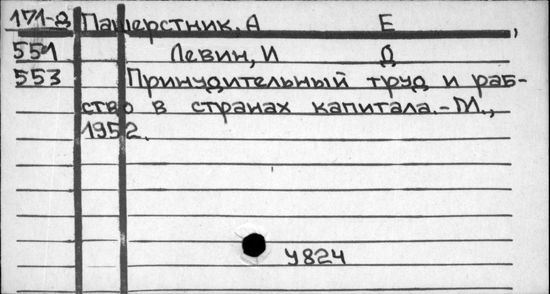 171-8 Пашерстник, А Е
551 Левин, И Д
553 Принудительный труд и раб-
ство в странах капитала.-М.,
1952.
У824